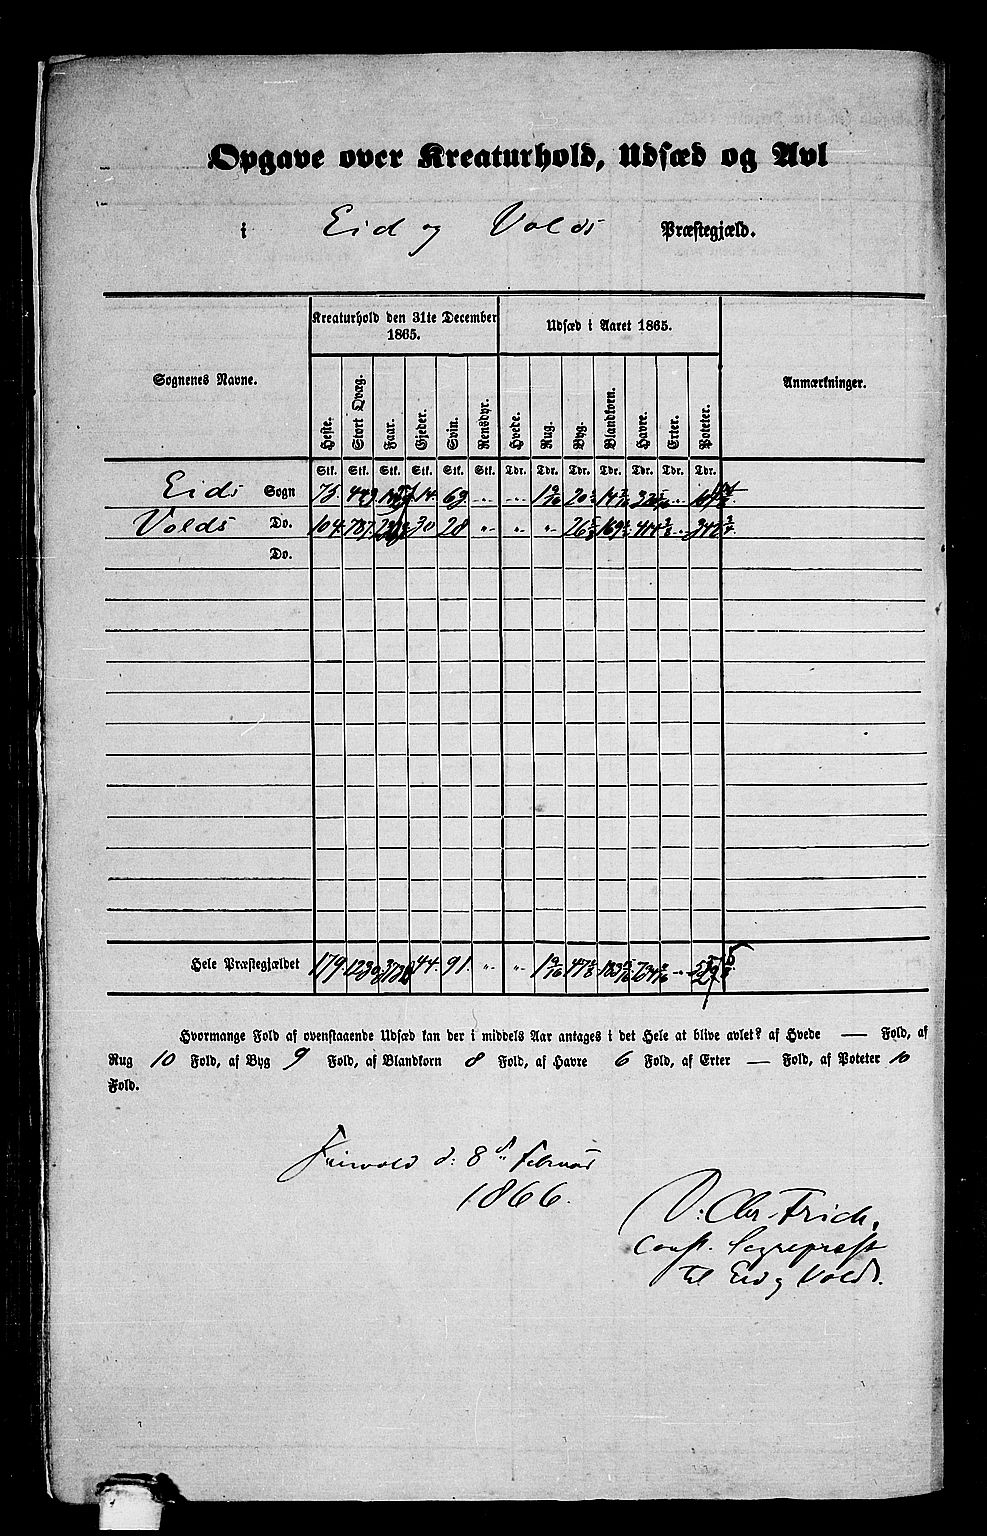 Opgave over Kreaturhold, Udsæd og Avl
i Eid og Volds Præstegjæld.
Sognenes Navne.
Kreaturhold den 31te December 1865.
Udsæd i Aaret 1865.
Anmærkninger.
Heste. Stort Qvæg. Faar. Gjeder. Svin. Rensdyr. Hvede. Rug. Byg. Blandkorn. Havre. Erter. Poteter.
Stk. Stk. Stk. Stk. Stk. Stk. Tdr. Tdr. Tdr. Tdr. Tdr. Tdr. Tdr.
Eids Sogn 75. 443 14. 63. „ „ 1 9/16
Volds Do. 104. 787. 30 28 „ „ „
Do.
Hele Præstegjældet 179. 1230 44. 91. „ „ 1 9/16
Hvormange Fold af ovenstaaende Udsæd kan der i middels Aar antages i det Hele at blive avlet? af Hvede — Fold, af
Rug 10 Fold, af Byg 9 Fold, af Blandkorn 8 Fold, af Havre 6 Fold, af Erter — Fold, af Poteter 10
Fold.
d: 8de Februar
1866.
V: Chr. Frich.
Const. Sognepræst
til Eid og Vold.